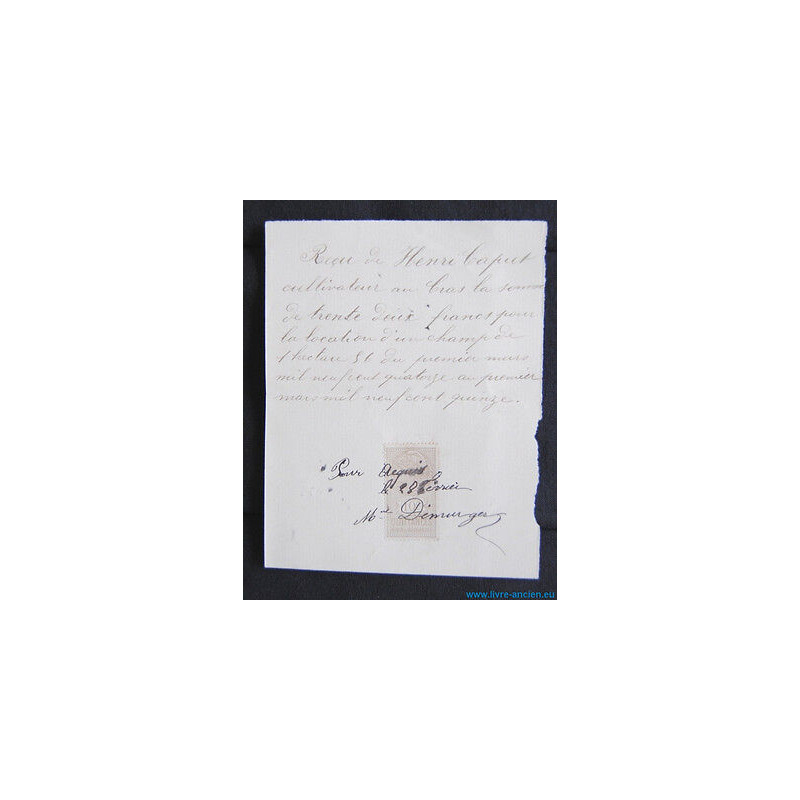 Reçu de Henri Caput
cultivateur au Cras la somme
de trente deux francs pour
la location d'un champ de
1 hectare 51 du premier mars
mil neufcent quatorze au premier
mars mil neufcent quinze.
Pour Acquis
le 28 Février
Mme Démurger
www.livre-ancien.eu